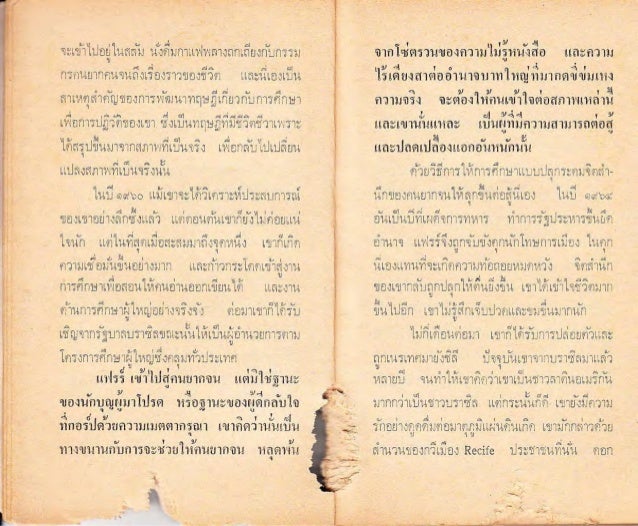 จะเข้าไปอยู่ในสลัม นั่งดื่มกาแฟพลางถกเถียงกับกรรม
กรคนยากคนจนถึงเรื่องราวของชีวิต และนี่เองเป็น
สาเหตุสำคัญของการพัฒนาทฤษฎีเกี่ยวกับการศึกษา
เพื่อการปฏิวัติของเขา ซึ่งเป็นทฤษฎีที่มีชีวิตชีวาเพราะ
ได้สรุปขึ้นมาจากสภาพที่เป็นจริง เพื่อกลับไปเปลี่ยน
แปลงสภาพที่เป็นจริงนั้น
ในปี ๑๙๖๐ แม้เขาจะได้วิเคราะห์ประสบการณ์
ของเขาอย่างลึกซึ้งแล้ว แต่ตอนต้นเขาก็ยังไม่ค่อยแน่
ใจนัก แต่ในที่สุดเมื่อสะสมมาถึงจุดหนึ่ง เขาก็เกิด
ความเชื่อมั่นขึ้นอย่างมาก และก้าวกระโดดเข้าสู่งาน
การศึกษาเพื่อสอนให้คนอ่านออกเขียนได้ และงาน
ด้านการศึกษาผู้ใหญ่อย่างจริงจัง ต่อมาเขาก็ได้รับ
เชิญจากรัฐบาลบราซิลขณะนั้นให้เป็นผู้อำนวยการตาม
โครงการศึกษาผู้ใหญ่ซึ่งคลุมทั่วประเทศ
แฟรร์ เข้าไปสู่คนยากจน แต่มิใช่ฐานะ
ของนักบุญผู้มาโปรด หรือฐานะของผู้ดีกลับใจ
ที่กอร์ปด้วยความเมตตากรุณา เขาคิดว่านั่นเป็น
ทางขนานกับการจะช่วยให้คนยากจน หลุดพ้น
จากโซ่ตรวนของความไม่รู้หนังสือ และความ
ไร้เดียงสาต่ออำนาจบาทใหญ่ที่มากดขี่ข่มเหง
ความจริง จะต้องให้คนเข้าใจต่อสภาพเหล่านี้
และเขานั่นแหละ เป็นผู้ที่มีความสามารถต่อสู้
และปลดเปลื้องแอกอันหนักนั้น
ด้วยวิธีการให้การศึกษาแบบปลุกระดมจิตสำ-
นึกของคนยากจนให้ลุกขึ้นต่อสู้นี่เอง ในปี ๑๙๖๔
อันเป็นปีที่เผด็จการทหาร ทำการรัฐประหารขึ้นยึด
อำนาจ แฟรร์จึงถูกจับขังคุกนักโทษการเมือง ในคุก
นี่เองแทนที่จะเกิดความท้อถอยหมดหวัง จิตสำนึก
ของเขากลับถูกปลุกให้ตื่นยิ่งขึ้น เขาได้เข้าใจชีวิตมาก
ขึ้นไปอีก เขาไม่รู้สึกเจ็บปวดและขมขื่นมากนัก
ไม่กี่เดือนต่อมา เขาก็ได้รับการปล่อยตัวและ
ถูกเนรเทศมายังชิลี ปัจจุบันเขาจากบราซิลมาแล้ว
หลายปี จนทำให้เขาคิดว่าเขาเป็นชาวลาตินอเมริกัน
มากกว่าเป็นชาวบราซิล แต่กระนั้นก็ดี เขายังมีความ
รักอย่างดูดดื่มต่อมาตุภูมิแผ่นดินเกิด เขามักกล่าวด้วย
สำนวนของกวีเมือง Recife ประชาชนที่นั่น ดอก